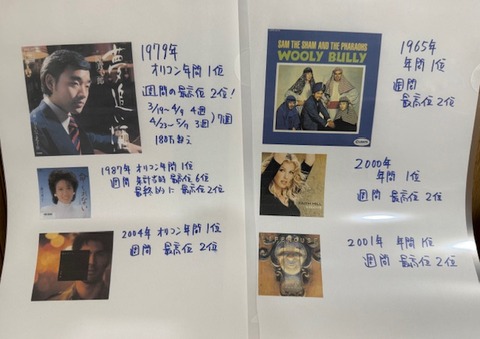 夢追い酒
1979年
オリコン年間1位
週間の最高位2位!
3/19~4/9 4週
4/23~5/7 3週 )7週
180万超え
1987年 オリコン年間1位
週間 集計方法 最高位6位
最終的に 最高位2位
2004年 オリコン年間1位
週間 最高位2位
SAM THE SHAM AND THE PHARAOHS
WOOLY BULLY
1965年
年間1位
週間
最高位2位
2000年
年間1位
週間 最高位2位
FAITH HILL
2001年 年間1位
週間 最高位2位